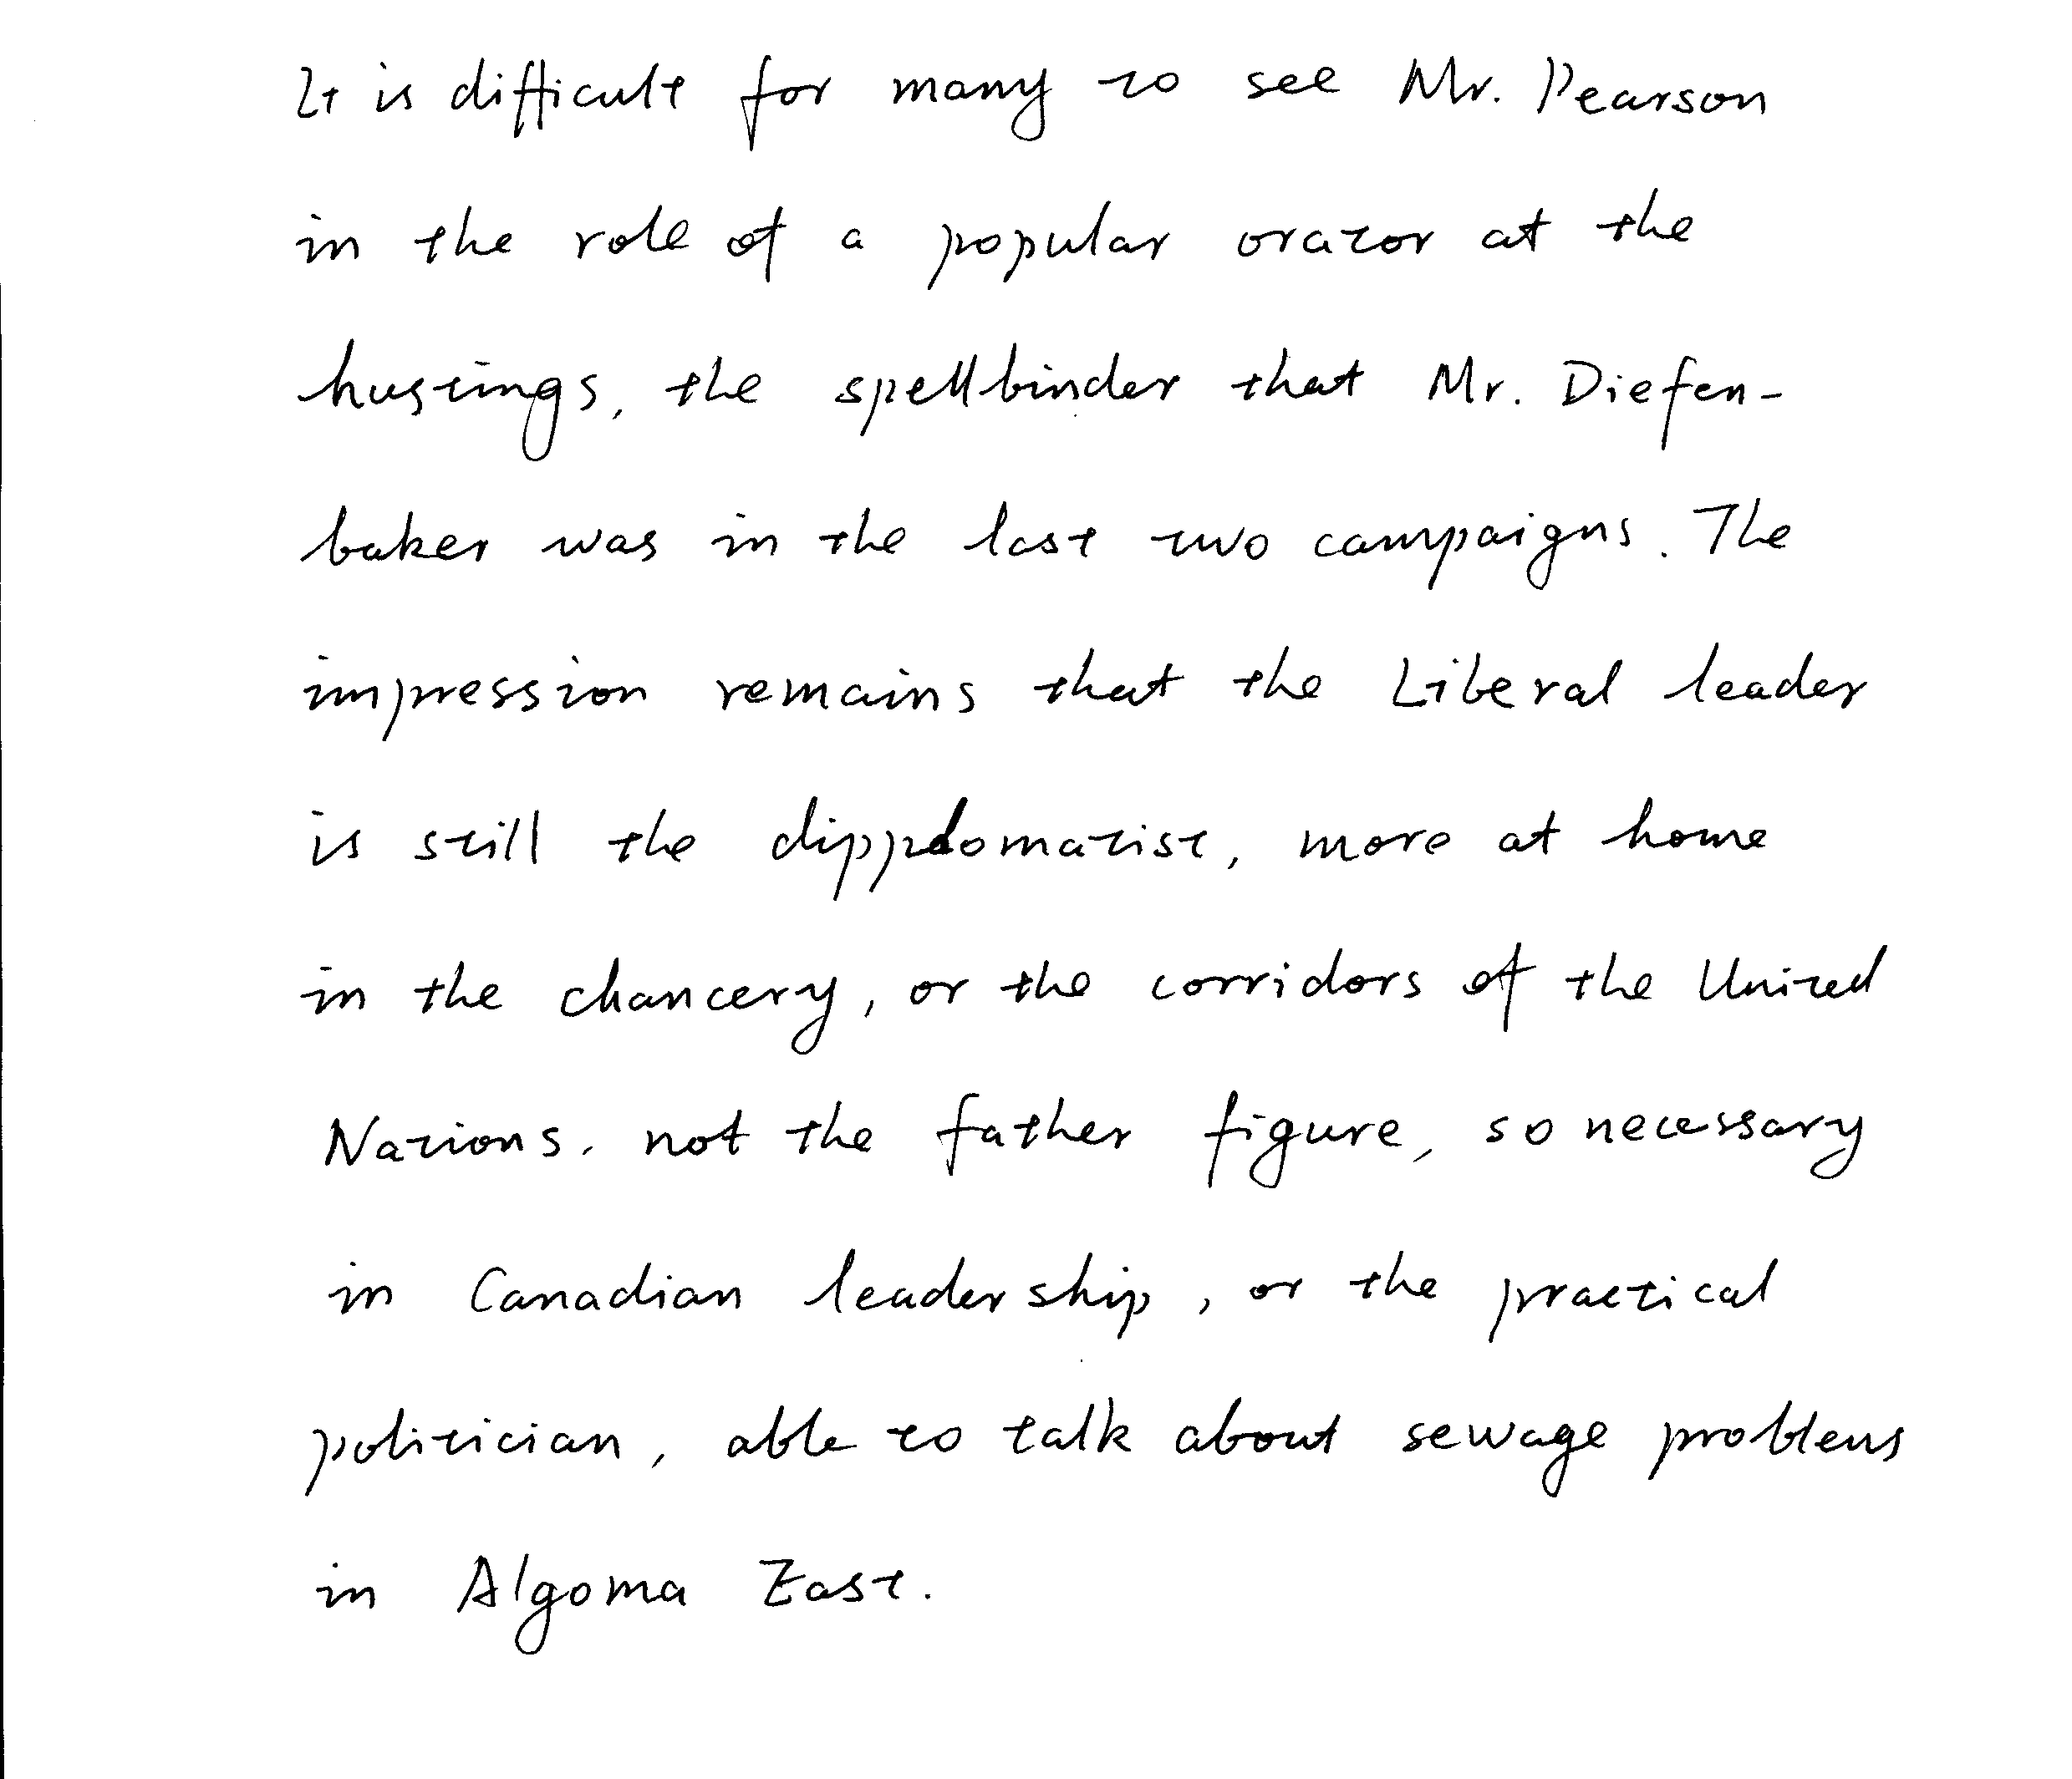 It is difficult for many to see Mr. Pearson
in the role of a popular orator at the
hustings, the spellbinder that Mr. Diefen-
baker was in the last two campaigns. The
impression remains that the Liberal leader
is still the dipplomatist, more at home
in the chancery, or the corridors of the United
Nations, not the father figure, so necessary
in Canadian leadership, or the practical
politician, able to talk about sewage problems
in Algoma East.